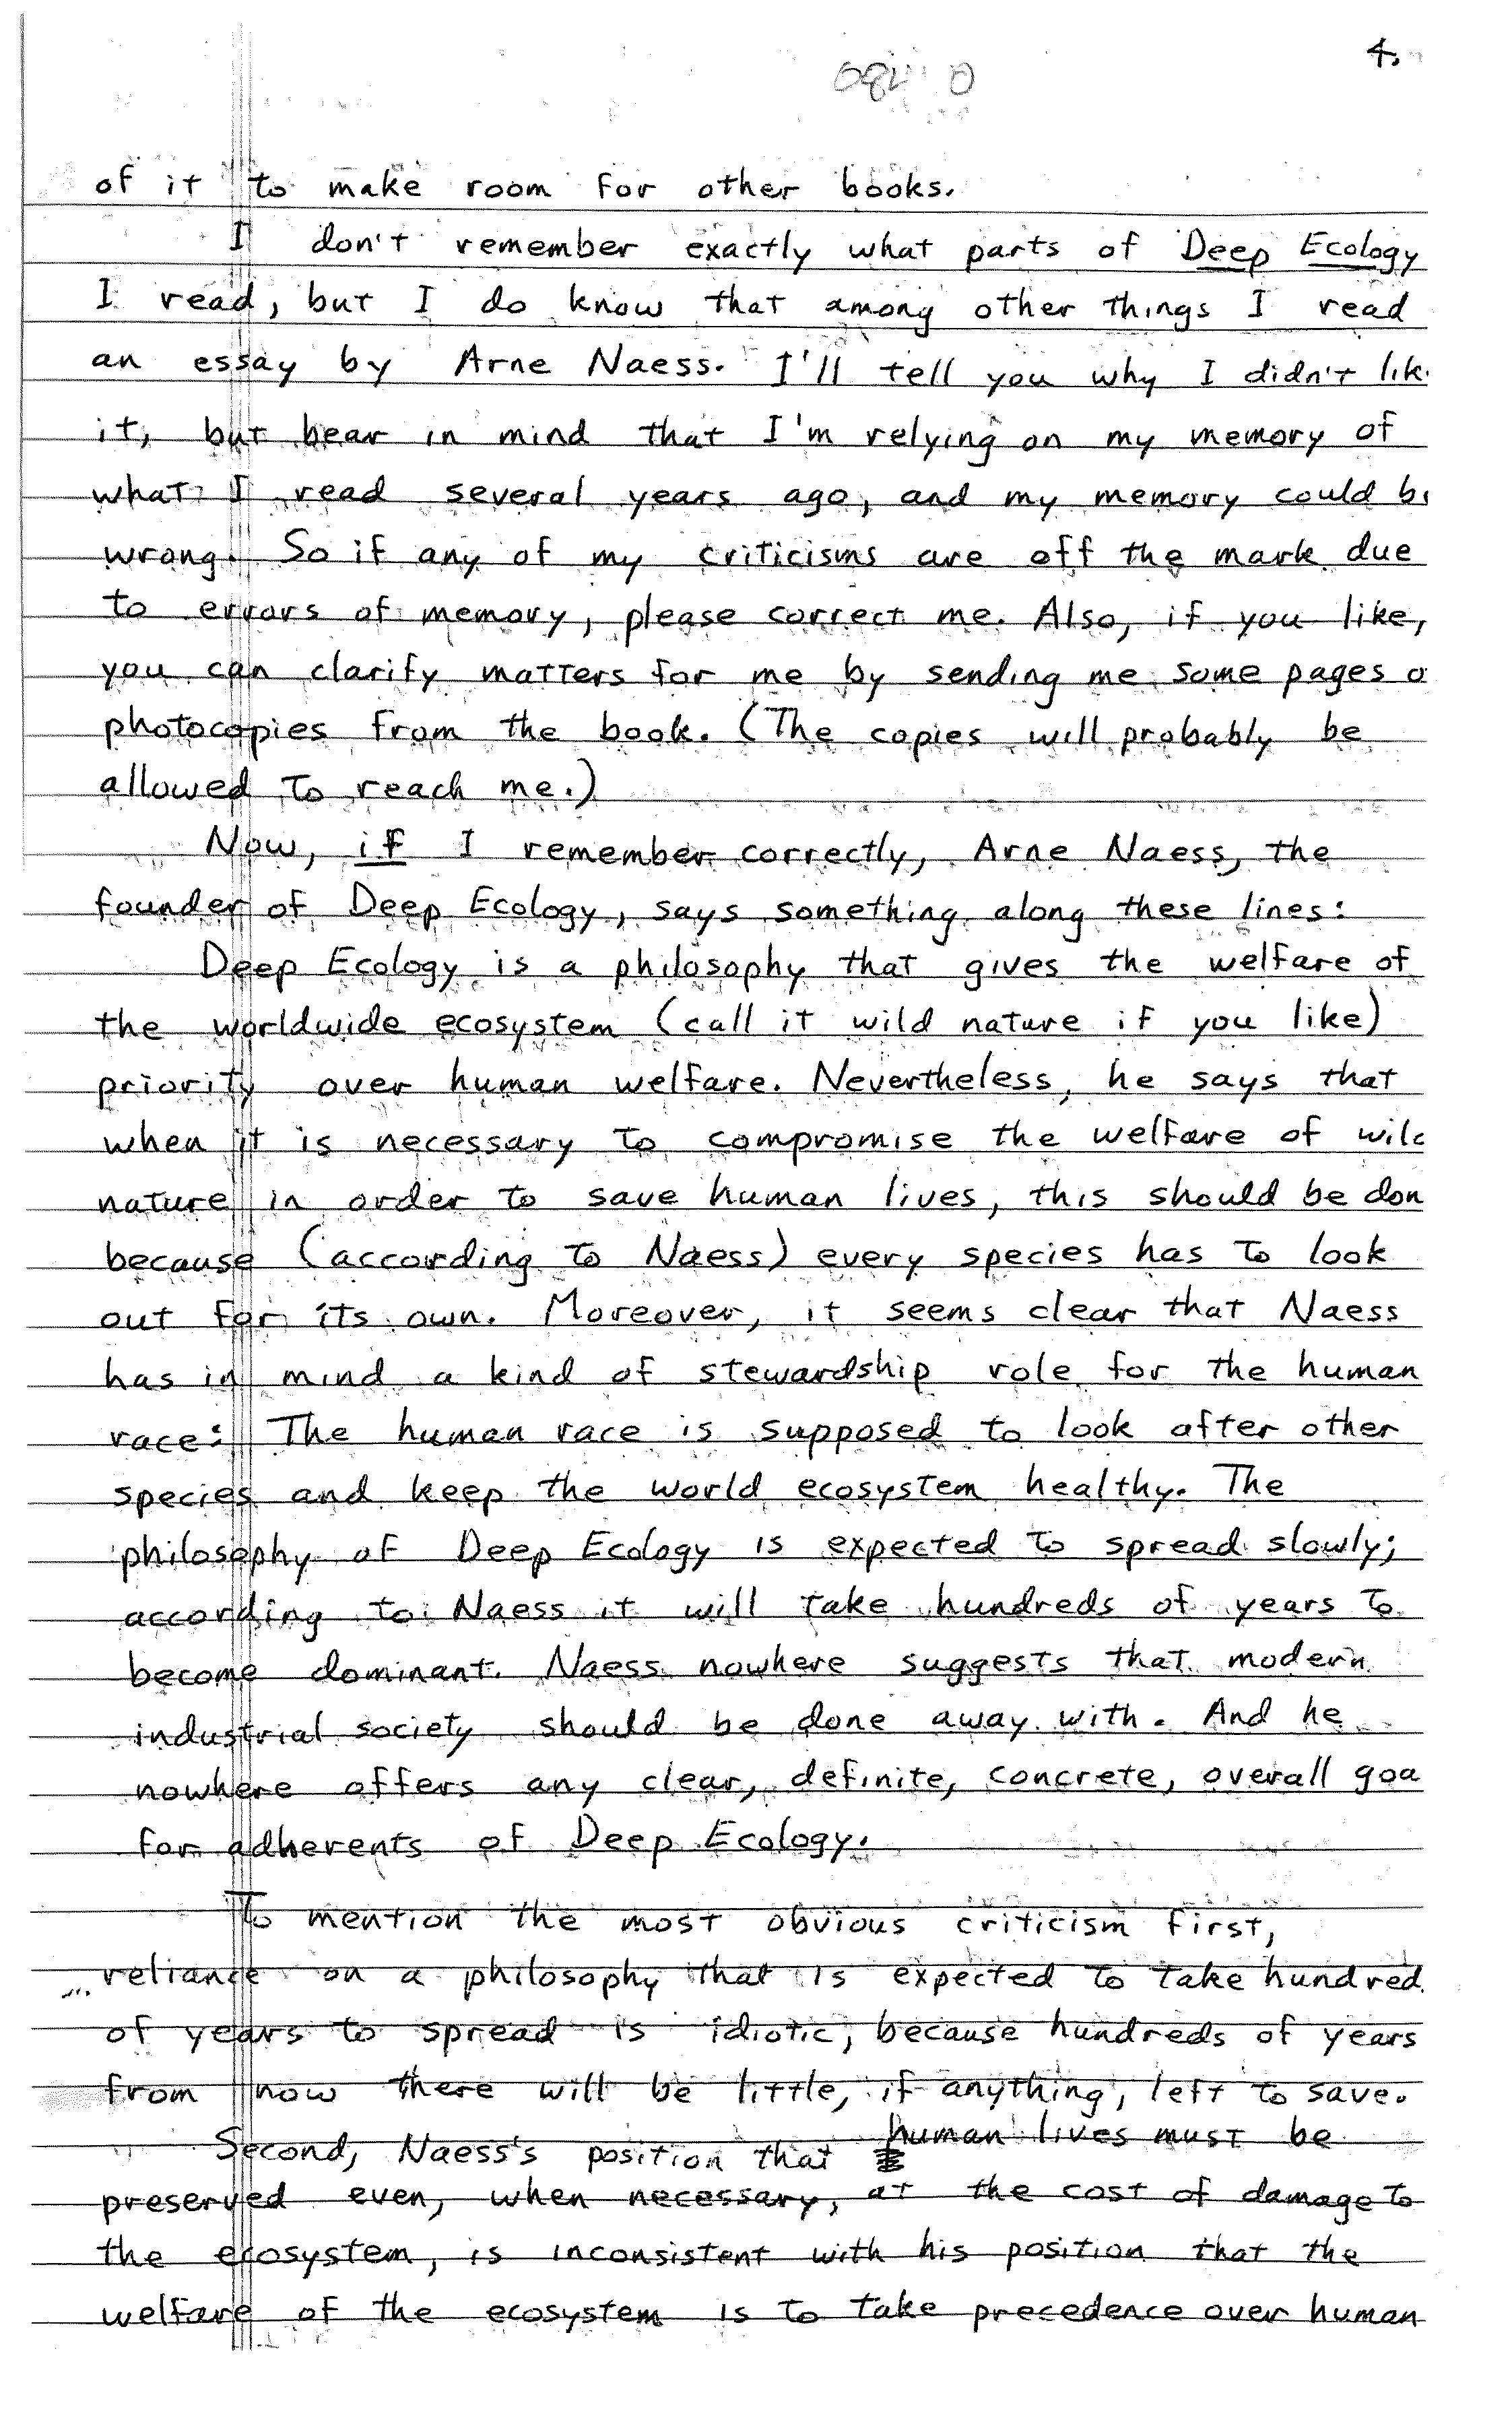 4.
of it to make room for other books.
I don't remember exactly what parts of Deep Ecology
I read, but I do know that among other things I read
an essay by Arne Naess. I'll tell you why I didn't lik
it, but bear in mind that I'm relying on my memory of
what I read several years ago, and my memory could b
wrong. So if any of my criticisms are off the mark due
to errors of memory, please correct me. Also, if you like,
you can clarify matters for me by sending me some pages o
photocopies from the book. (The copies will probably be
allowed to reach me.)
Now, if I remember correctly, Arne Naess, the
founder of Deep Ecology, says something along these lines:
Deep Ecology is a philosophy that gives the welfare of
the worldwide ecosystem (call it wild nature if you like)
priority over human welfare. Nevertheless, he says that
when it is necessary to compromise the welfare of wil
nature in order to save human lives, this should be don
because (according to Naess) every species has to look
out for its own. Moreover, it seems clear that Naess
has in mind a kind of stewardship role for the human
race: The human race is supposed to look after other
species and keep the world ecosystem healthy. The
philosophy of Deep Ecology is expected to spread slowly;
according to Naess it will take hundreds of years to
become dominant. Naess nowhere suggests that modern
industrial society should be done away with. And he
nowhere offers any clear, definite, concrete, overall goa
for adherents of Deep Ecology.
To mention the most obvious criticism first,
reliance on a philosophy that is expected to take hundred
of years to spread is idiotic, because hundreds of years
from now there will be little, if anything, left to save.
Second, Naess's position that human lives must be
preserved even, when necessary, at the cost of damage to
the ecosystem, is inconsistent with his position that the
welfare of the ecosystem is to take precedence over human